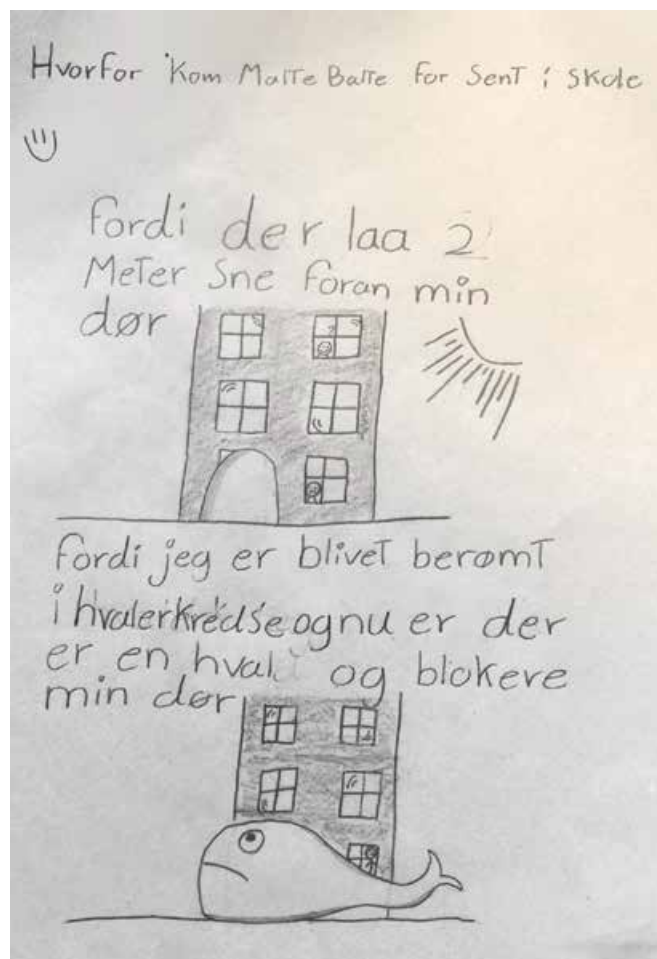 Hvorfor Kom Malte Balte for Sent i Skole
fordi der laa 2
Meter Sne foran min
dør
fordi jeg er blivet berømt
i hvalerkredse og nu er der
er en hval og blokere
min dør